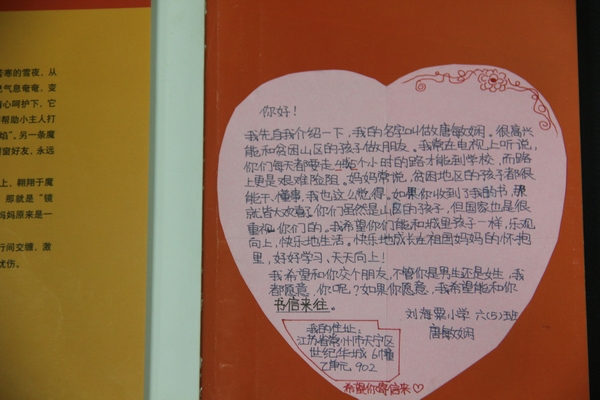 苦寒的雪夜，从
气息奄奄，变
心呵护下，它
帮助小主人打
焰”。另一条魔
窗好友，永远
上，翱翔于魔
那就是“镜
妈妈原来是一
行间交缠，激
忧伤。
你好！
我先自我介绍一下，我的名字叫做唐敏娴。很高兴
能和贫困山区的孩子做朋友。我常在电视上听说，
你们每天都要走4、5个小时的路才能到学校，而路
上更是艰难险阻。妈妈常说，贫困地区的孩子都很
能干、懂事，我也这么觉得。如果你收到了我的书，那
就皆大欢喜了，你们虽然是山区的孩子，但国家也是很
重视你们的。我希望你们能和城里孩子一样，乐观
向上，快乐地生活。快乐地成长在祖国妈妈的怀抱
里，好好学习、天天向上！
我希望和你交个朋友，不管你是男生还是女生，我
都愿意，你呢？如果你愿意，我希望能和你
书信来往。
刘海粟小学 六(5)班
唐敏娴
我的住址：
江苏省常州市天宁区
世纪华城 6幢
乙单元 902
希望你寄信来♡